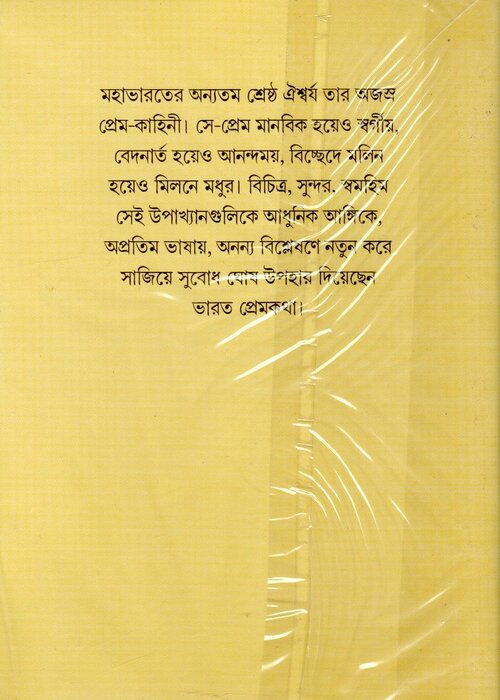 মহাভারতের অন্যতম শ্রেষ্ঠ ঐশ্বর্য তার অজস্র
প্রেম-কাহিনী। সে-প্রেম মানবিক হয়েও স্বর্গীয়,
বেদনার্ত হয়েও আনন্দময়, বিচ্ছেদে মলিন
হয়েও মিলনে মধুর। বিচিত্র, সুন্দর, স্বমহিম
সেই উপাখ্যানগুলিকে আধুনিক আঙ্গিকে,
অপ্রতিম ভাষায়, অনন্য বিশ্লেষণে নতুন করে
সাজিয়ে সুবোধ ঘোষ উপহার দিয়েছেন
ভারত প্রেমকথা।